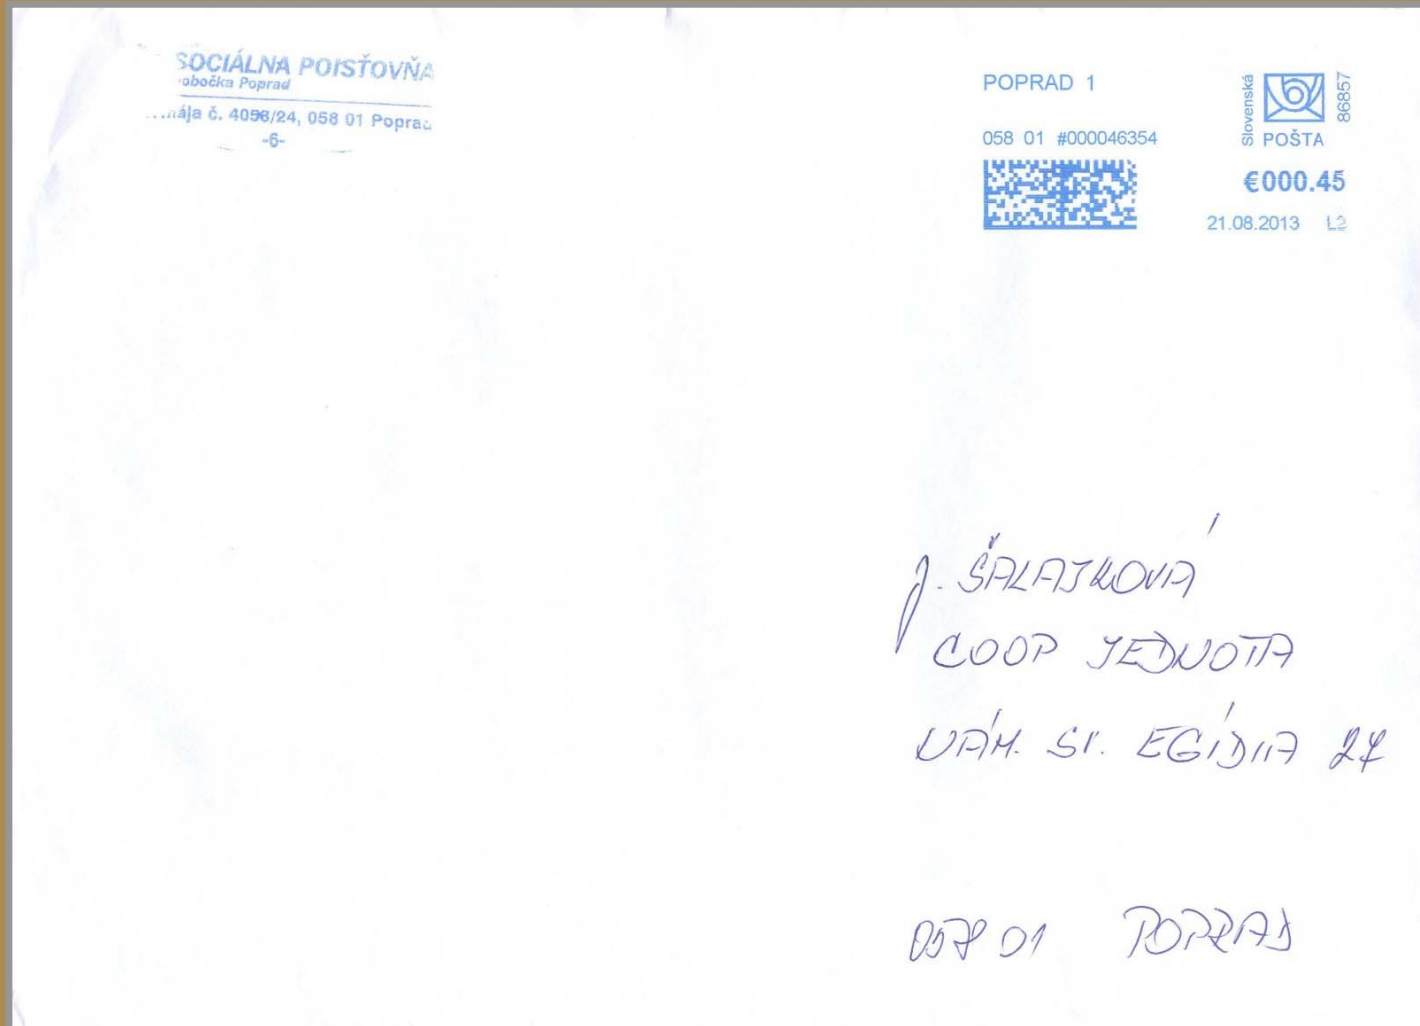 SOCIÁLNA POISŤOVŇA
obočka Poprad
mája č. 4056/24, 058 01 Poprad
-6-
POPRAD 1
058 01 #000046354
Slovenská
POŠTA
86857
€000.45
21.08.2013 L2
J. ŠALAJKOVÁ
COOP JEDNOTA
NÁM. SV. EGÍDIA 27
058 01 POPRAD